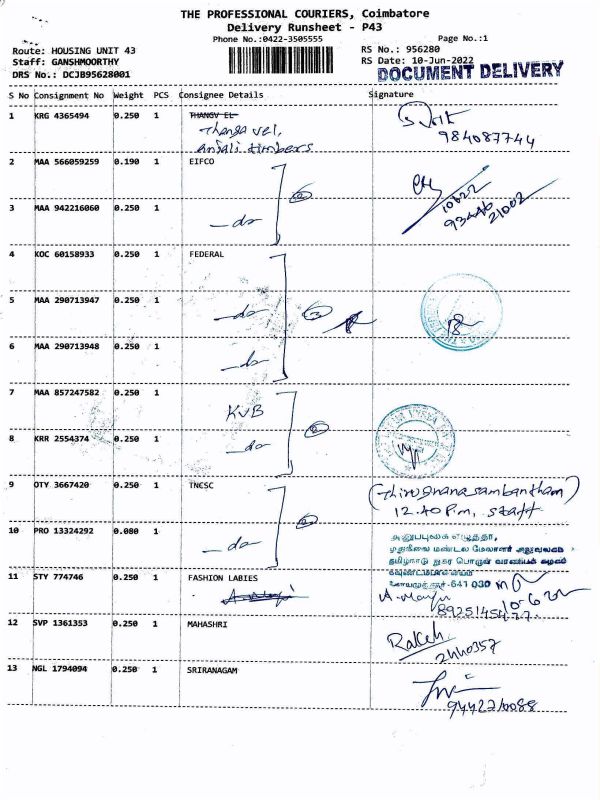 THE PROFESSIONAL COURIERS, Coimbatore
Delivery Runsheet - P43
Phone No.:0422-3505555
Page No.:1
Route: HOUSING UNIT 43
RS No.: 956280
Staff: GANSHMOORTHY
RS Date: 10-Jun-2022
DRS No.: DCJB95628001
DOCUMENT DELIVERY
S No Consignment No Weight PCS Consignee Details Signature
1 KRG 4365494 0.250 1 THANGV EL
Thangavel,
Anjali timbers
984087744
2 MAA 566059259 0.190 1 EIFCO
10622
93446
21002
3 MAA 942216060 0.250 1 -do
4 KOC 60158933 0.250 1 FEDERAL
5 MAA 290713947 0.250 1 -do 3
6 MAA 290713948 0.250 1 -do
7 MAA 857247582 0.250 1 KVB
8 KRR 2554374 0.250 1 -do 2
9 OTY 3667420 0.250 1 TNCSC
(Thirugnanasambantham)
12.40 P.m, staff
10 PRO 13324292 0.080 1 -do 2
முதுநிலை மண்டல மேலாளர் அலுவலகம்
தமிழ்நாடு நுகர் பொருள் வாணிபக் கழகம்
641 030
11 STY 774746 0.250 1 FASHION LABIES
10-6-22
12 SVP 1361353 0.250 1 MAHASHRI
Rakesh
2440357
13 NGL 1794094 0.250 1 SRIRANAGAM
9442210088